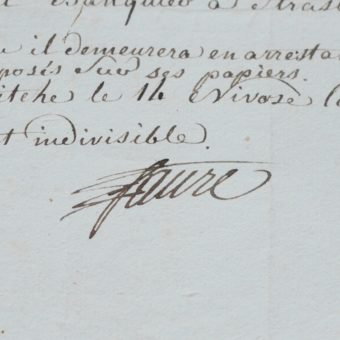 Banquier à Stras
il demeurera en arresta
posés sur ses papiers.
itche le 14 Nivose
t indivisible.
Faure